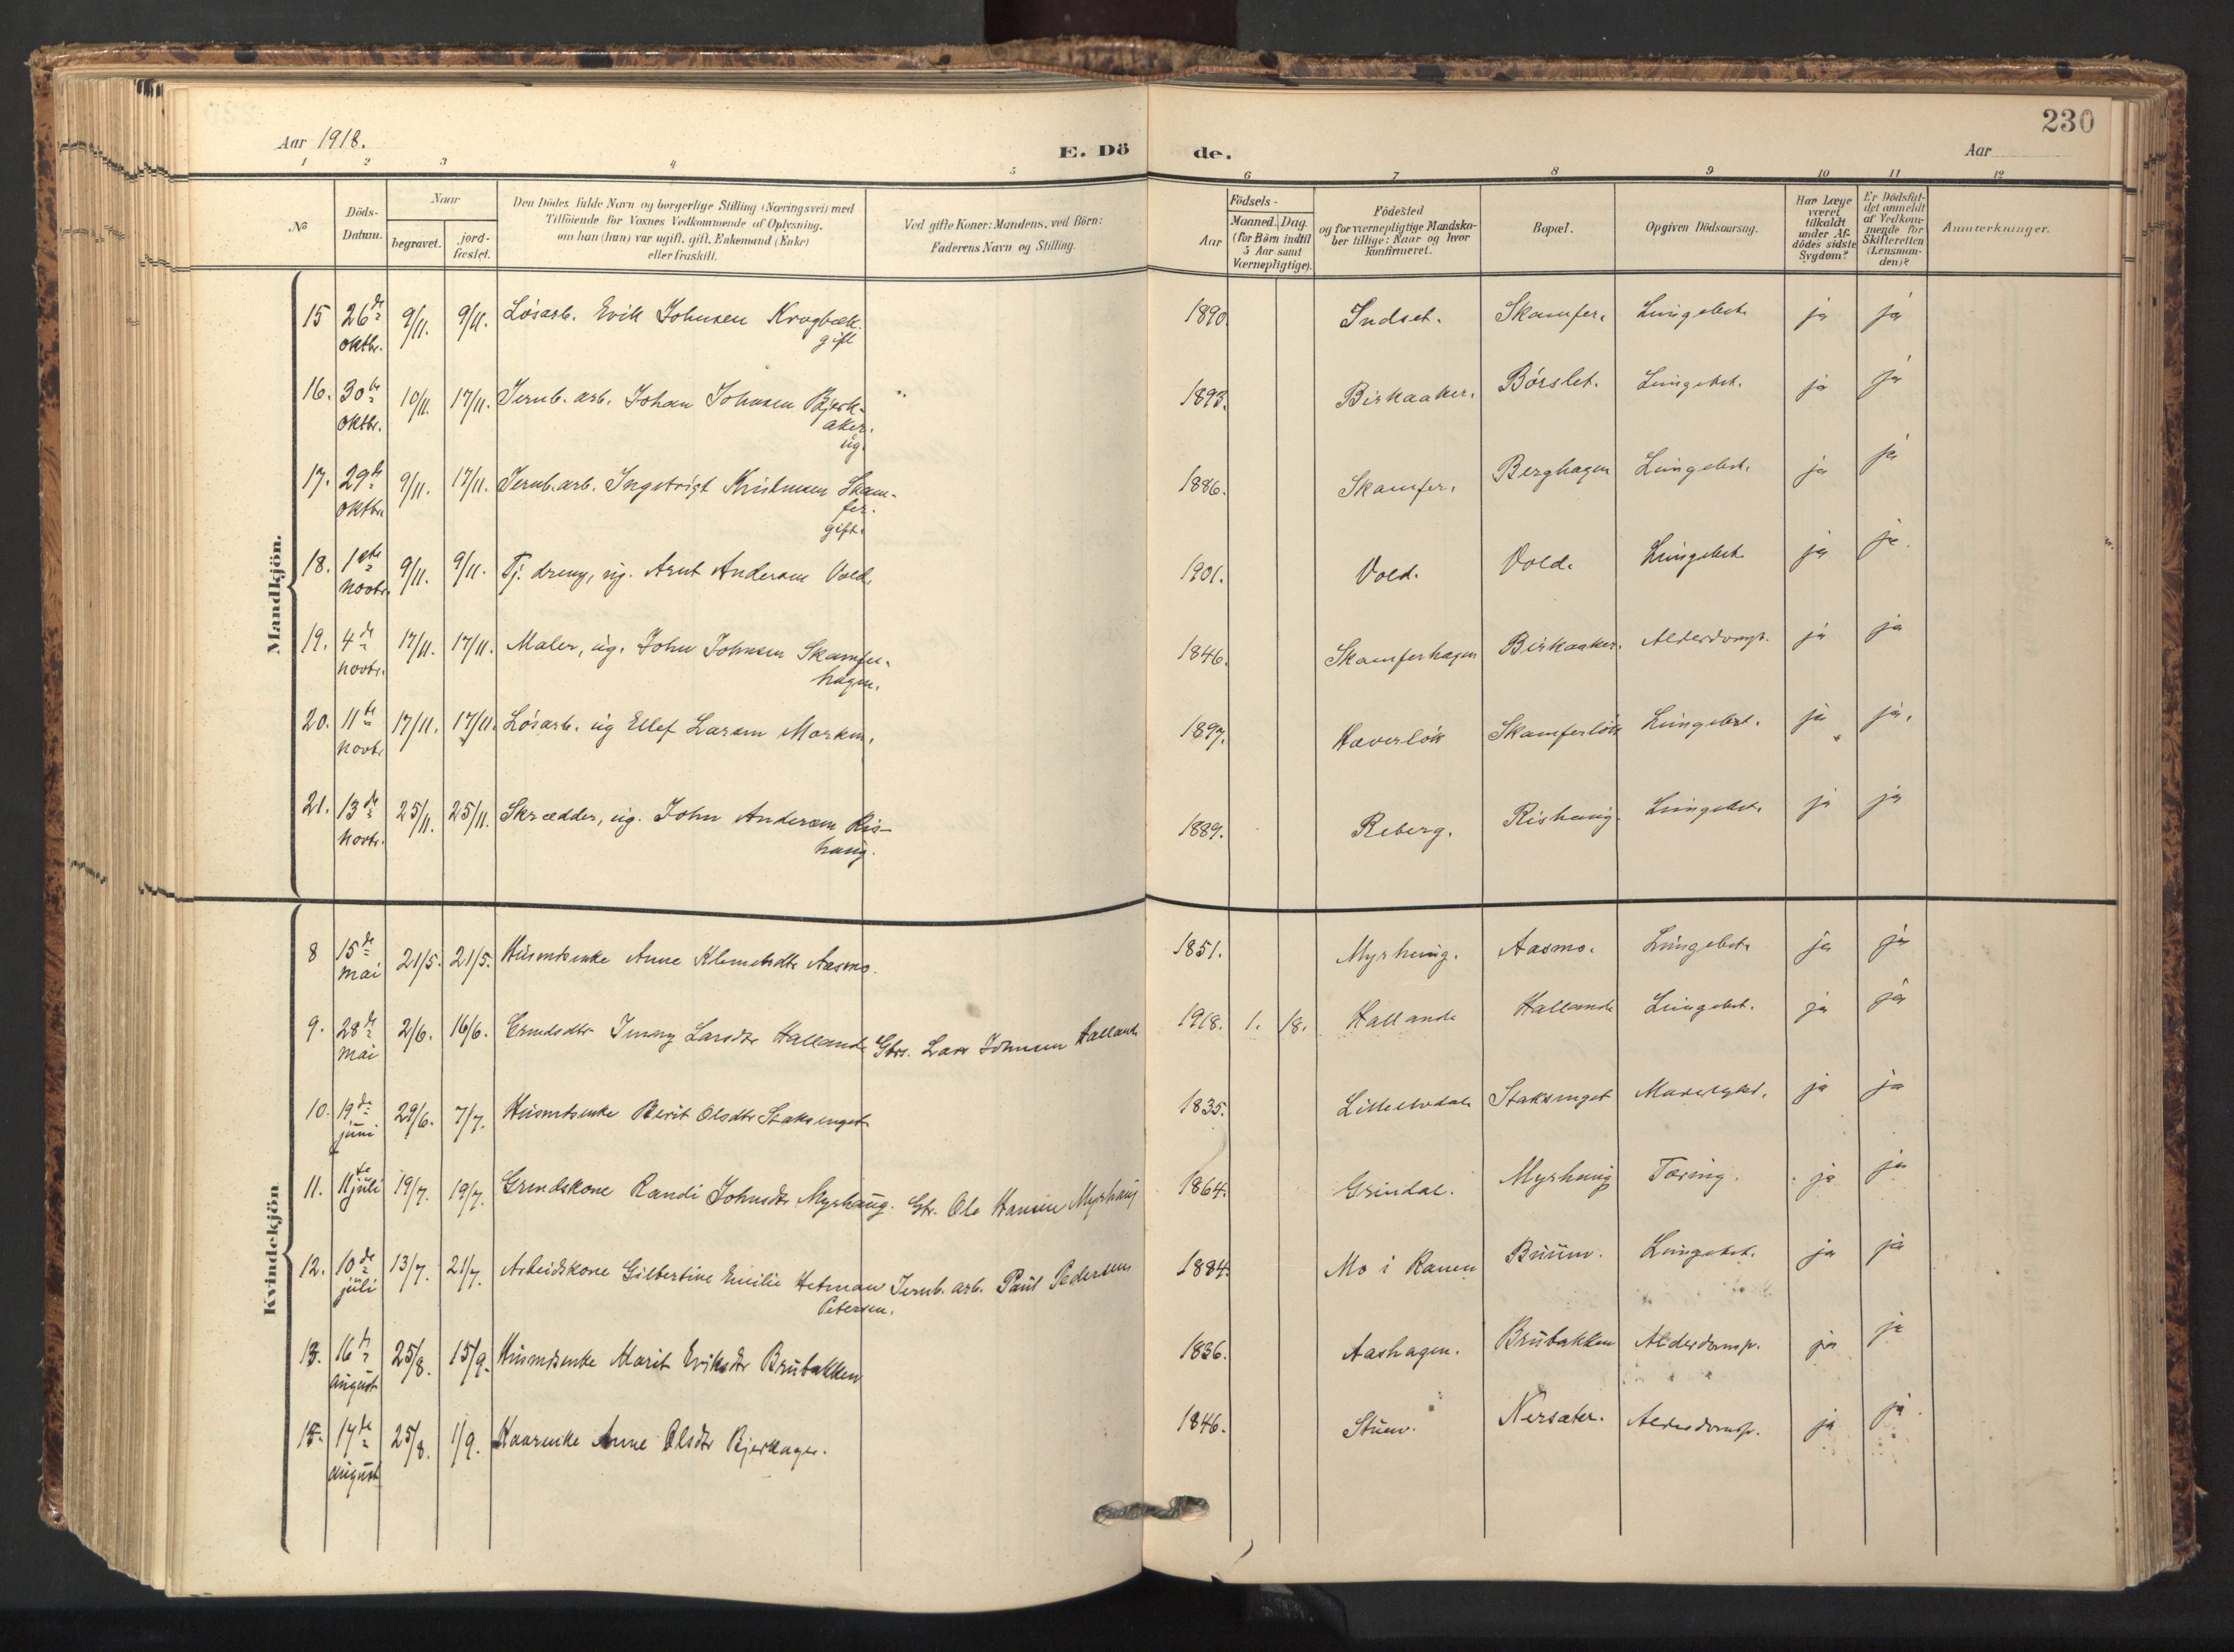 230
Aar 1918.
E. Dö de.
Aar
1 2 3 4 5 6 7 8 9 10 11 12
№
Döds-Datum.
Naar
begravet.
jord-fæstet.
Den Dödes fulde Navn og borgerlige Stilling (Næringsvei) med
Tilföiende for Voxnes Vedkommende af Oplysning,
om han (hun) var ugift, gift, Enkemand (Enke)
eller fraskilt.
Ved gifte Koner: Mandens, ved Börn:
Faderens Navn og Stilling.
Födsels-
Aar
Maaned. Dag.
(for Börn indtil
5 Aar samt
Værnepligtige).
Födested
og for værnepligtige Mandska-
ber tillige: Naar og hvor
konfirmeret.
Bopæl.
Opgiven Dödsaarsag.
Har Læge
været
tilkaldt
under Af-
dödes sidste
Sygdom?
Er Dödsfal-
det anmeldt
af Vedkom-
mende for
Skifteretten
(Lensman-
den)?
Anmærkninger.
Mandkjön.
15 26de 9/11. 9/11. Løsarb. Erik Johnsen Krogbæk. 1890. Indset. Skamfer. Lungebet. ja ja
oktbr. gift
16. 30te 10/11. 17/11. Jernb. arb. Johan Johnsen Bjerk- " 1893. Birkaaker. Börslet. Lungebet. ja ja
oktbr. aker.
ug.
17. 29de 9/11. 17/11. Jernb. arb. Ingebrigt Kristensen Skam- 1886. Skamfer. Berghagen Lungebet. ja ja
oktbr. fer.
gift.
18. 1ste 9/11. 9/11. Tj. dreng, ug. Arnt Andersen Vold. 1901. Vold. Vold. Lungebet. ja ja.
novbr.
19. 4de 17/11. 17/11. Maler, ug. John Johnsen Skamfer- 1846. Skamferhagen Birkaaker. Alderdomsv. ja ja
novbr. hagen.
20. 11te 17/11. 17/11. Løsarb. ug Ellef Larsen Morken. 1897. Haverløkk Skamferløkk Lungebet. ja ja.
novbr.
21. 13de 25/11. 25/11. Skrædder, ug. John Andersen Ris- 1889. Reberg. Rishaug. Lungebet. ja ja
novbr. haug.
Kvindekjön
8 15de 21/5. 21/5. Husmdsenke Anne Klemetsdtr Aasmo. 1851. Myrhaug. Aasmo. Lungebet. ja ja
mai
9. 28de 2/6. 16/6. Grmdsdtr Jenny Larsdtr Hallande Gbr. Lars Johnsen Hallande 1918. 1. 18. Hallande Hallande Lungebet. ja ja
mai
10. 19de 29/6. 7/7. Husmdsenke Berit Olsdtr Staksenget 1835. Lilleelvdalen Staksenget ja ja
juni
11. 11te juli 19/7. 19/7. Grmdskone Randi Johnsdtr Myrhaug. Gbr. Ole Hansen Myrhaug 1864. Grindal. Myrhaug Tæring. ja ja
12. 10de 13/7. 21/7. Arbeidskone Gilbertine Emilie Hetman Jernb. arb. Paul Pedersen 1884. Mo i Ranen Lungebet. ja ja
juli Petersen.
13. 16de 25/8. 15/9. Husmdsenke Marit Eriksdtr Brubakken 1836. Aashagen. Brubakken Alderdomsv. ja ja
august
15. 17de 25/8. 1/9. Kaarenke Anne Olsdtr Bjerkager. 1846. Stuen. Nersæter. Alderdomsv. ja ja.
august